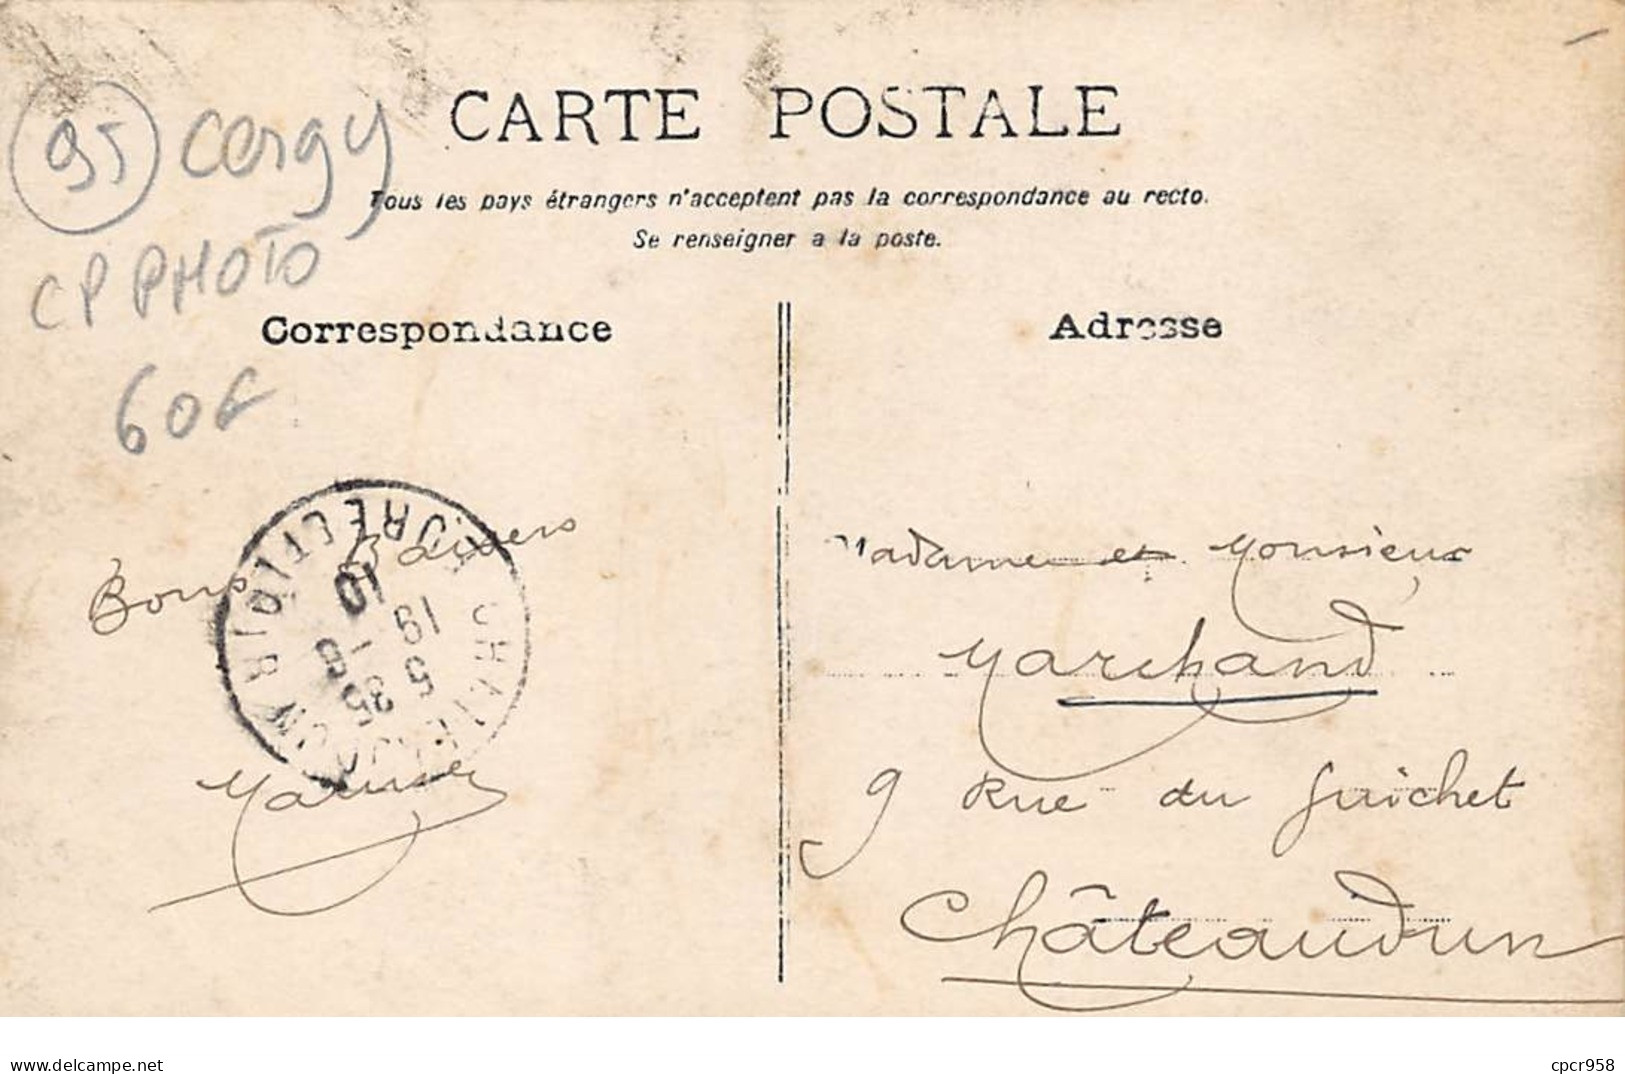 CARTE POSTALE
95 Cergy
Tous les pays étrangers n'acceptent pas la correspondance au recto.
Se renseigner a la poste.
CP PHOTO
60€
Correspondance
Adresse
Bons Baisers
Madame et Monsieur
Marchand
9 Rue du Guichet
Châteaudun
10
19 - 8
5 35
Website: delcampe.net
cpcr958